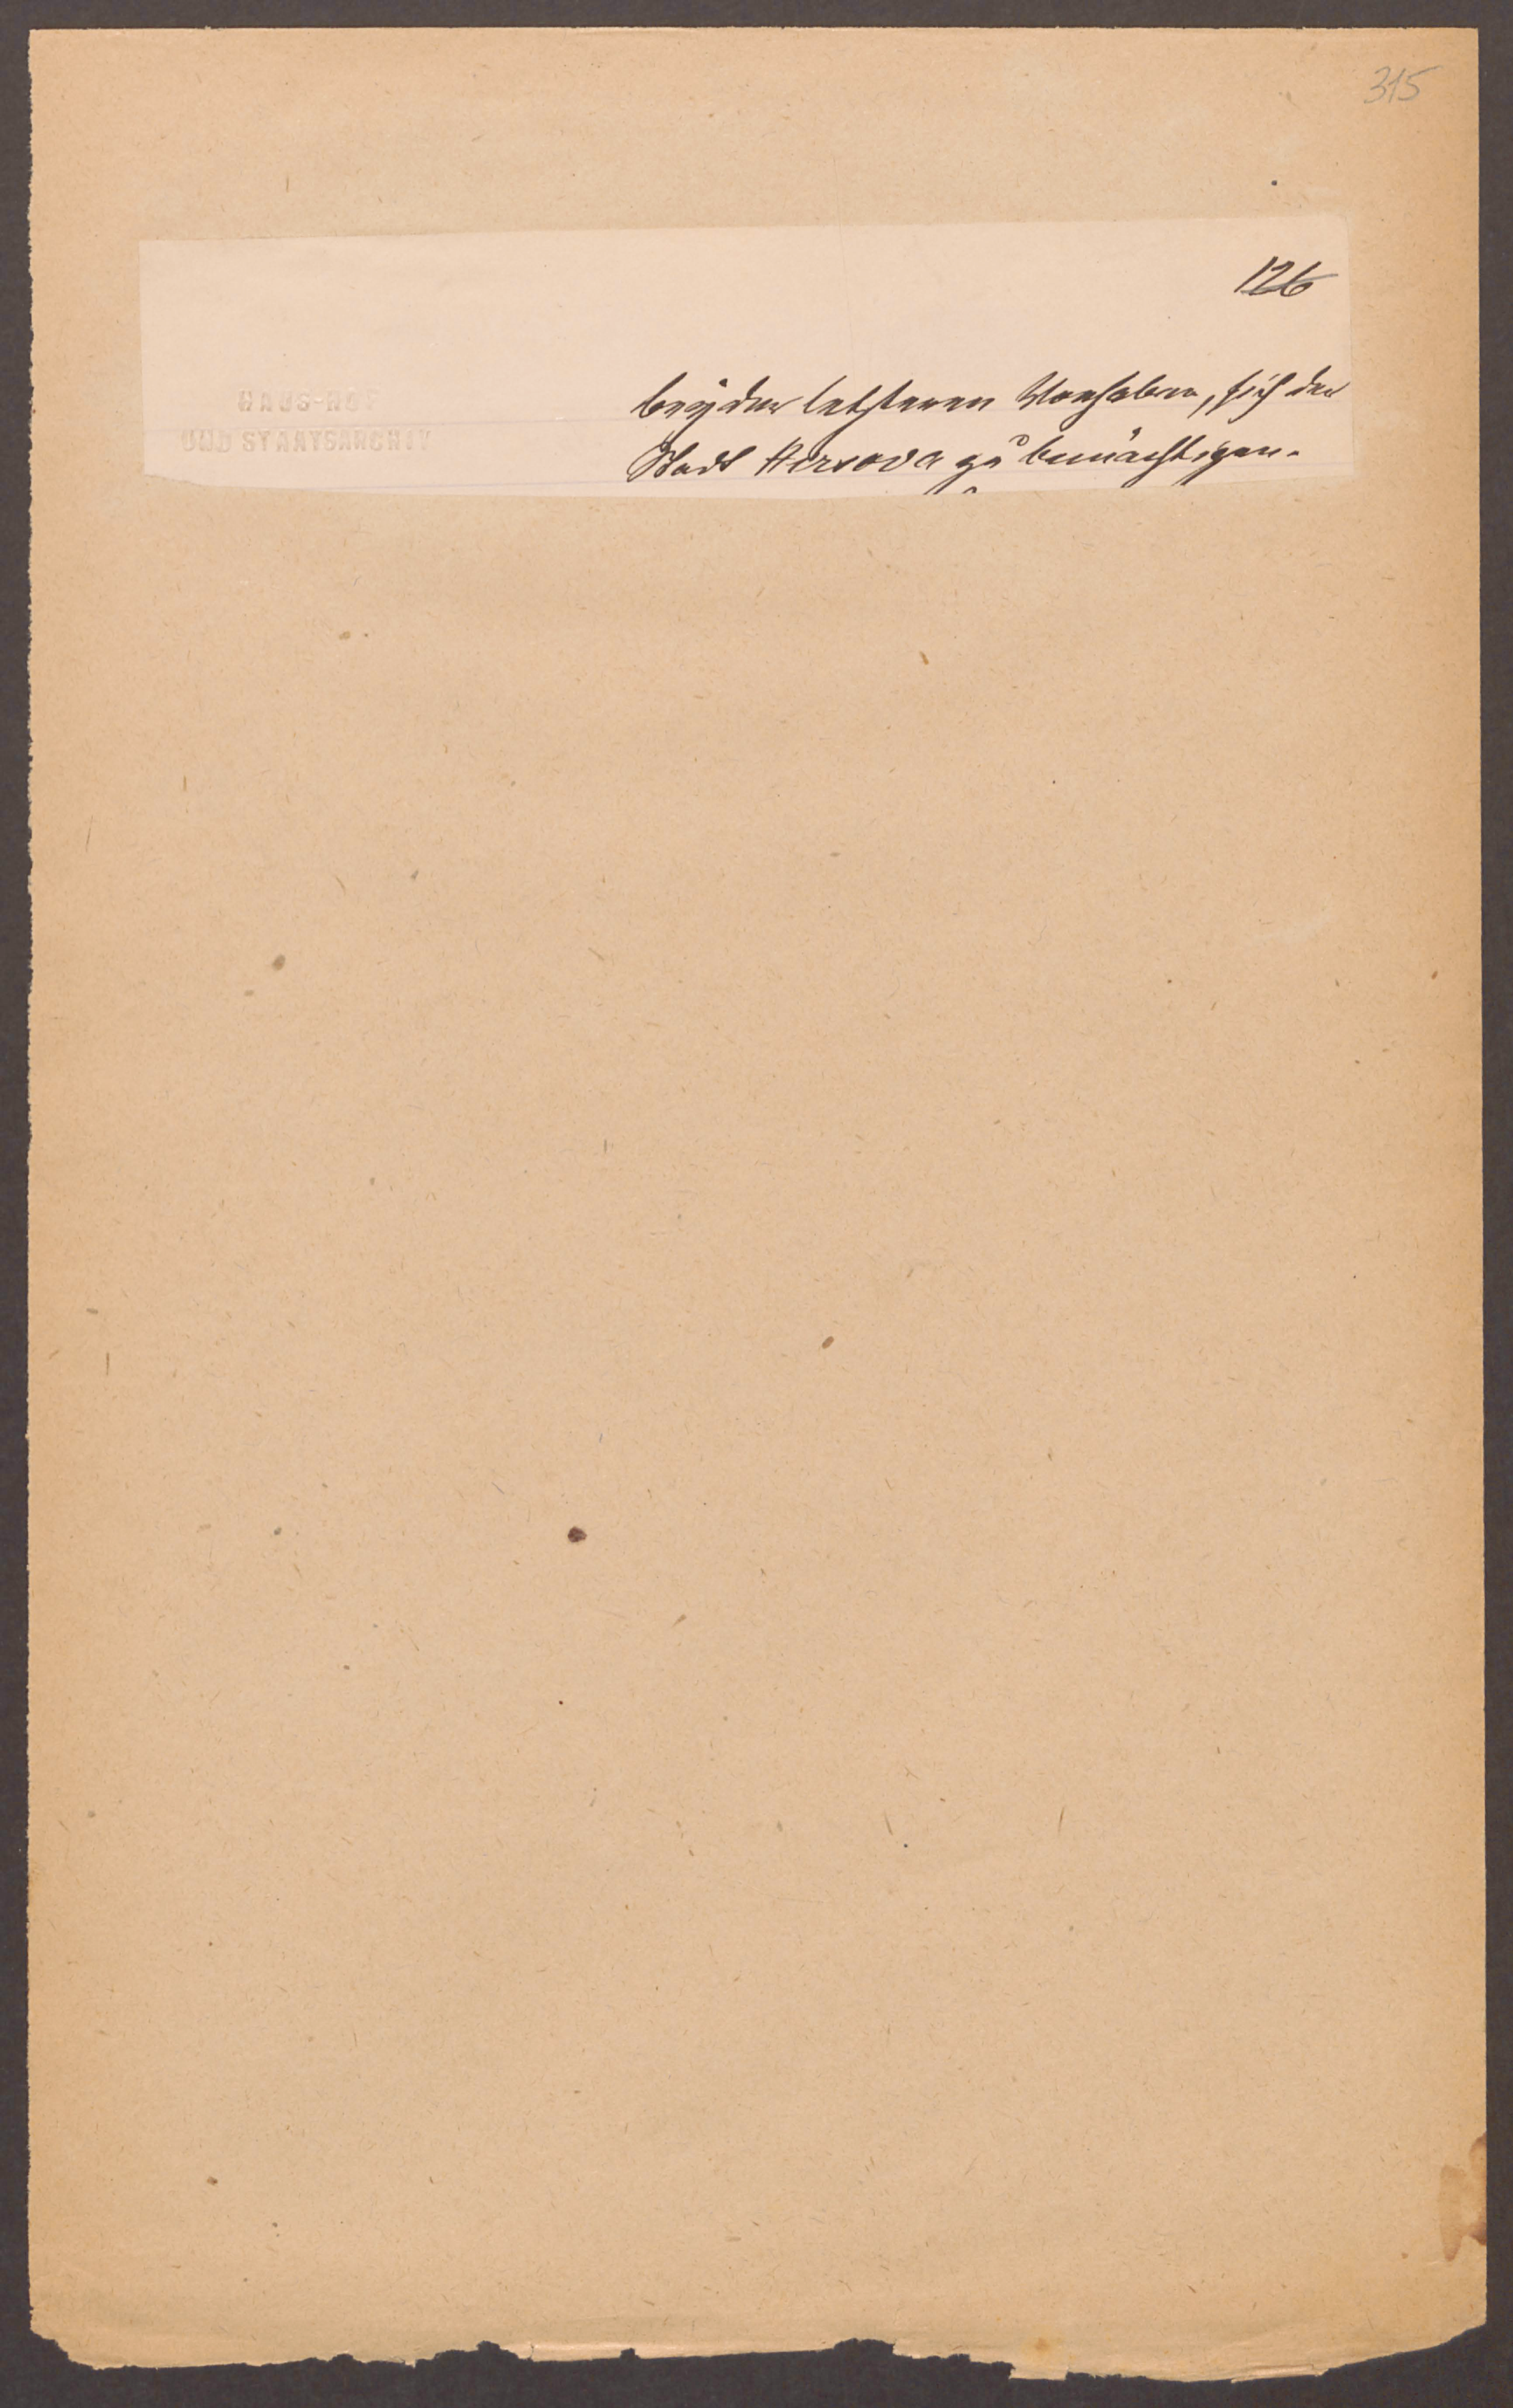 315
126
HAUS-HOF
UND STAATSARCHIV
beÿder letzteren Vorhaben, sich der
Stadt Hirsova zu bemächtigen.